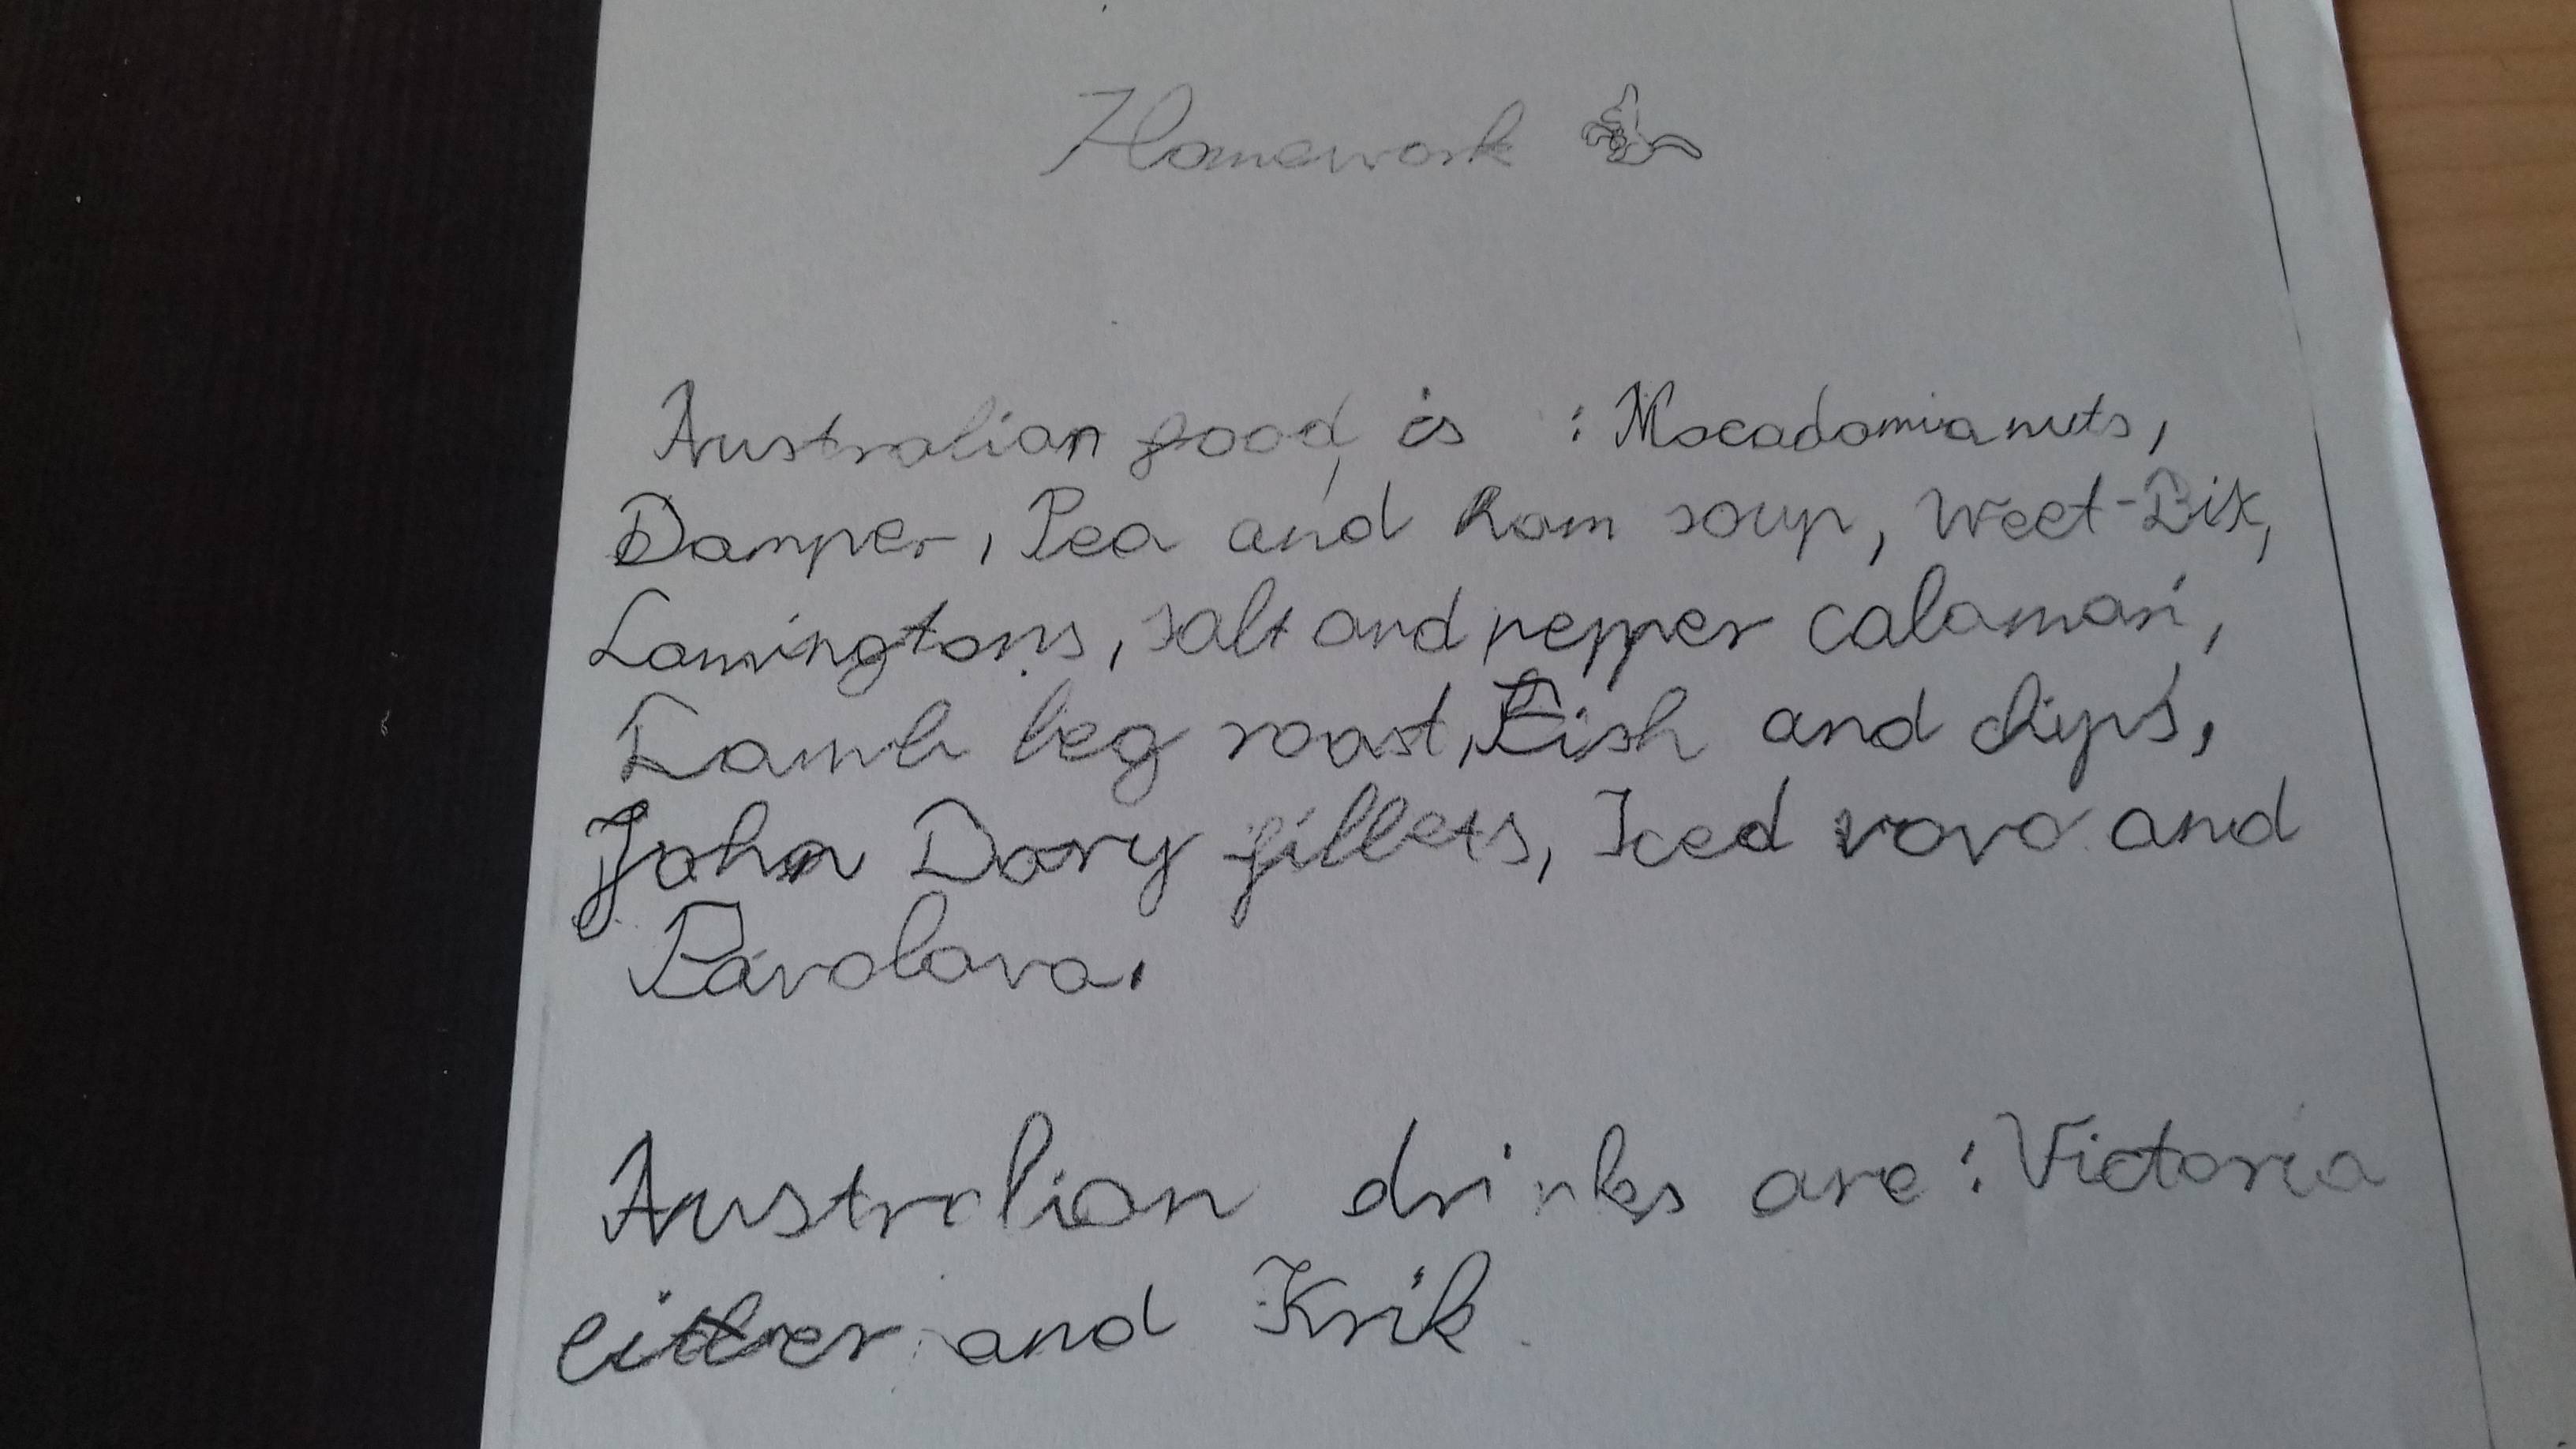 Homework
Australian food is : Macadamia nuts,
Damper, Pea and ham soup, Weet-Bix,
Lamingtons, salt and pepper calamari,
Lamb leg roast, Fish and chips,
John Dory fillets, Iced vovo and
Pavolova.
Australian drinks are : Victoria
either and Krik.